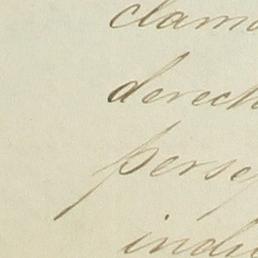 clamo
derech
perse
indi